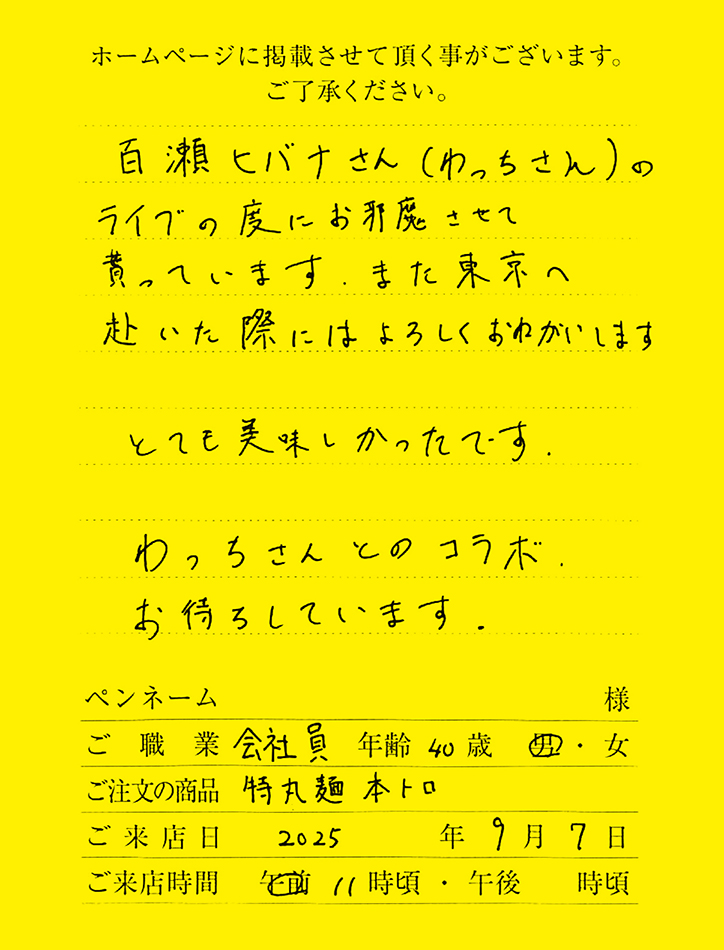 ホームページに掲載させて頂く事がございます。
ご了承ください。
百瀬ヒバナさん(わっちさん)の
ライブの度にお邪魔させて
貰っています.また東京へ
赴いた際にはよろしくおねがいします
とても美味しかったです.
わっちさんとのコラボ.
お待ちしています.
ペンネーム 様
ご職業 会社員 年齢 40 歳 男・女
ご注文の商品 特丸麺 本トロ
ご来店日 2025 年 9 月 7 日
ご来店時間 午前 11 時頃・午後 時頃